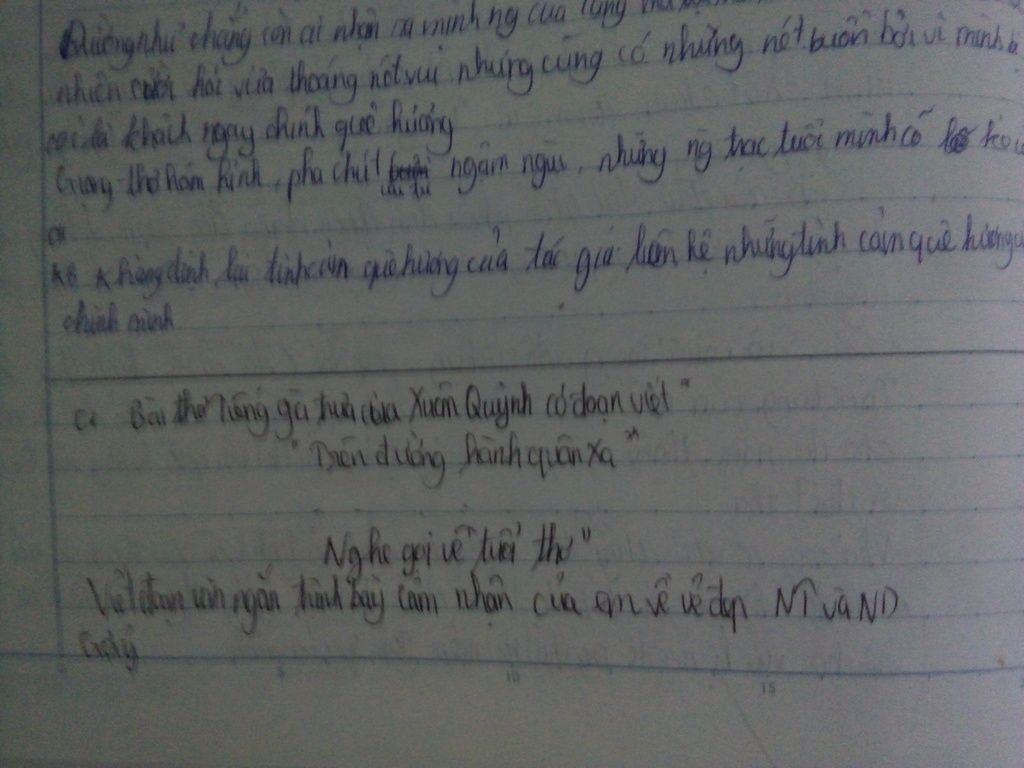 Dường như chẳng còn ai nhận ra mình ng của làng
nhiên cười hỏi vừa thoáng nét vui nhưng cũng có những nét buồn bởi vì mình bị
coi là khách ngay chính quê hương
Giọng thơ hóm hỉnh, pha chút ngậm ngùi, những ng trạc tuổi mình có
KB Khẳng định lại tình cảm quê hương của tác giả liên hệ những tình cảm quê hương
chính mình
C. Bài thơ Tiếng gà trưa của Xuân Quỳnh có đoạn viết "
" Trên đường hành quân xa
Nghe gọi về tuổi thơ"
Viết đoạn văn ngắn trình bày cảm nhận của em về vẻ đẹp NT và ND
Gợi ý
5 10 15